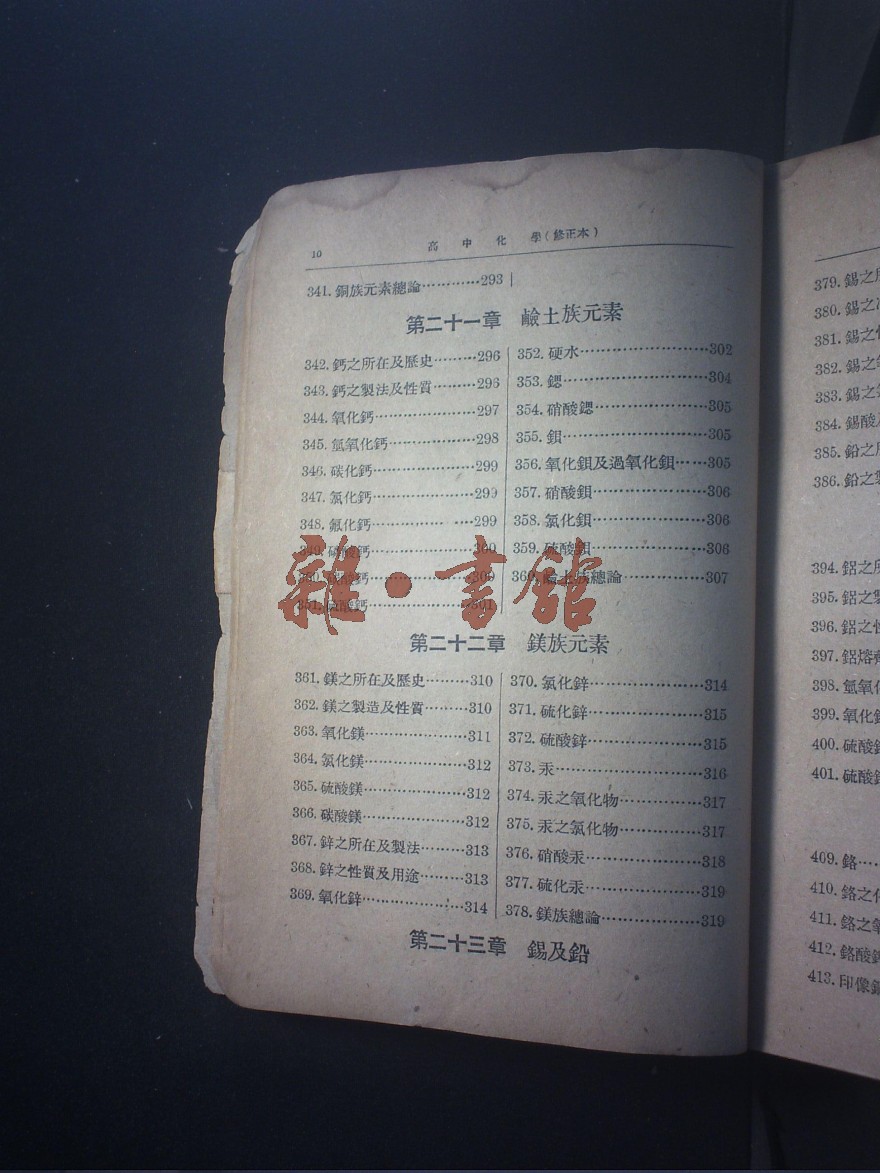 10 高中化學(修正本)
341. 銅族元素總論…………293
第二十一章 鹼土族元素
342. 鈣之所在及歷史………296
343. 鈣之製法及性質………296
344. 氧化鈣…………………297
345. 氫氧化鈣………………298
346. 碳化鈣…………………299
347. 氯化鈣…………………299
348. 氟化鈣…………………299
349. 硝酸鈣…………………300
鈣…………………300
351. 硫酸鈣…………………301
352. 硬水……………………302
353. 鍶………………………304
354. 硝酸鍶…………………305
355. 鋇………………………305
356. 氧化鋇及過氧化鋇……305
357. 硝酸鋇…………………306
358. 氯化鋇…………………306
359. 硫酸鋇…………………306
360. 鹼土族總論……………307
雜·書館
第二十二章 鎂族元素
361. 鎂之所在及歷史………310
362. 鎂之製造及性質………310
363. 氧化鎂…………………311
364. 氯化鎂…………………312
365. 硫酸鎂…………………312
366. 碳酸鎂…………………312
367. 鋅之所在及製法………313
368. 鋅之性質及用途………313
369. 氧化鋅…………………314
370. 氯化鋅…………………314
371. 硫化鋅…………………315
372. 硫酸鋅…………………315
373. 汞………………………316
374. 汞之氧化物……………317
375. 汞之氯化物……………317
376. 硝酸汞…………………318
377. 硫化汞…………………319
378. 鎂族總論………………319
第二十三章 錫及鉛
379. 錫之
380. 錫之
381. 錫之
382. 錫之
383. 錫之
384. 錫酸
385. 鉛之
386. 鉛之
394. 鋁之
395. 鋁之
396. 鋁之
397. 鋁熔
398. 氫氧
399. 氧化
400. 硫酸
401. 硫酸
409. 鉻…
410. 鉻之
411. 鉻之
412. 鉻酸
413. 印像